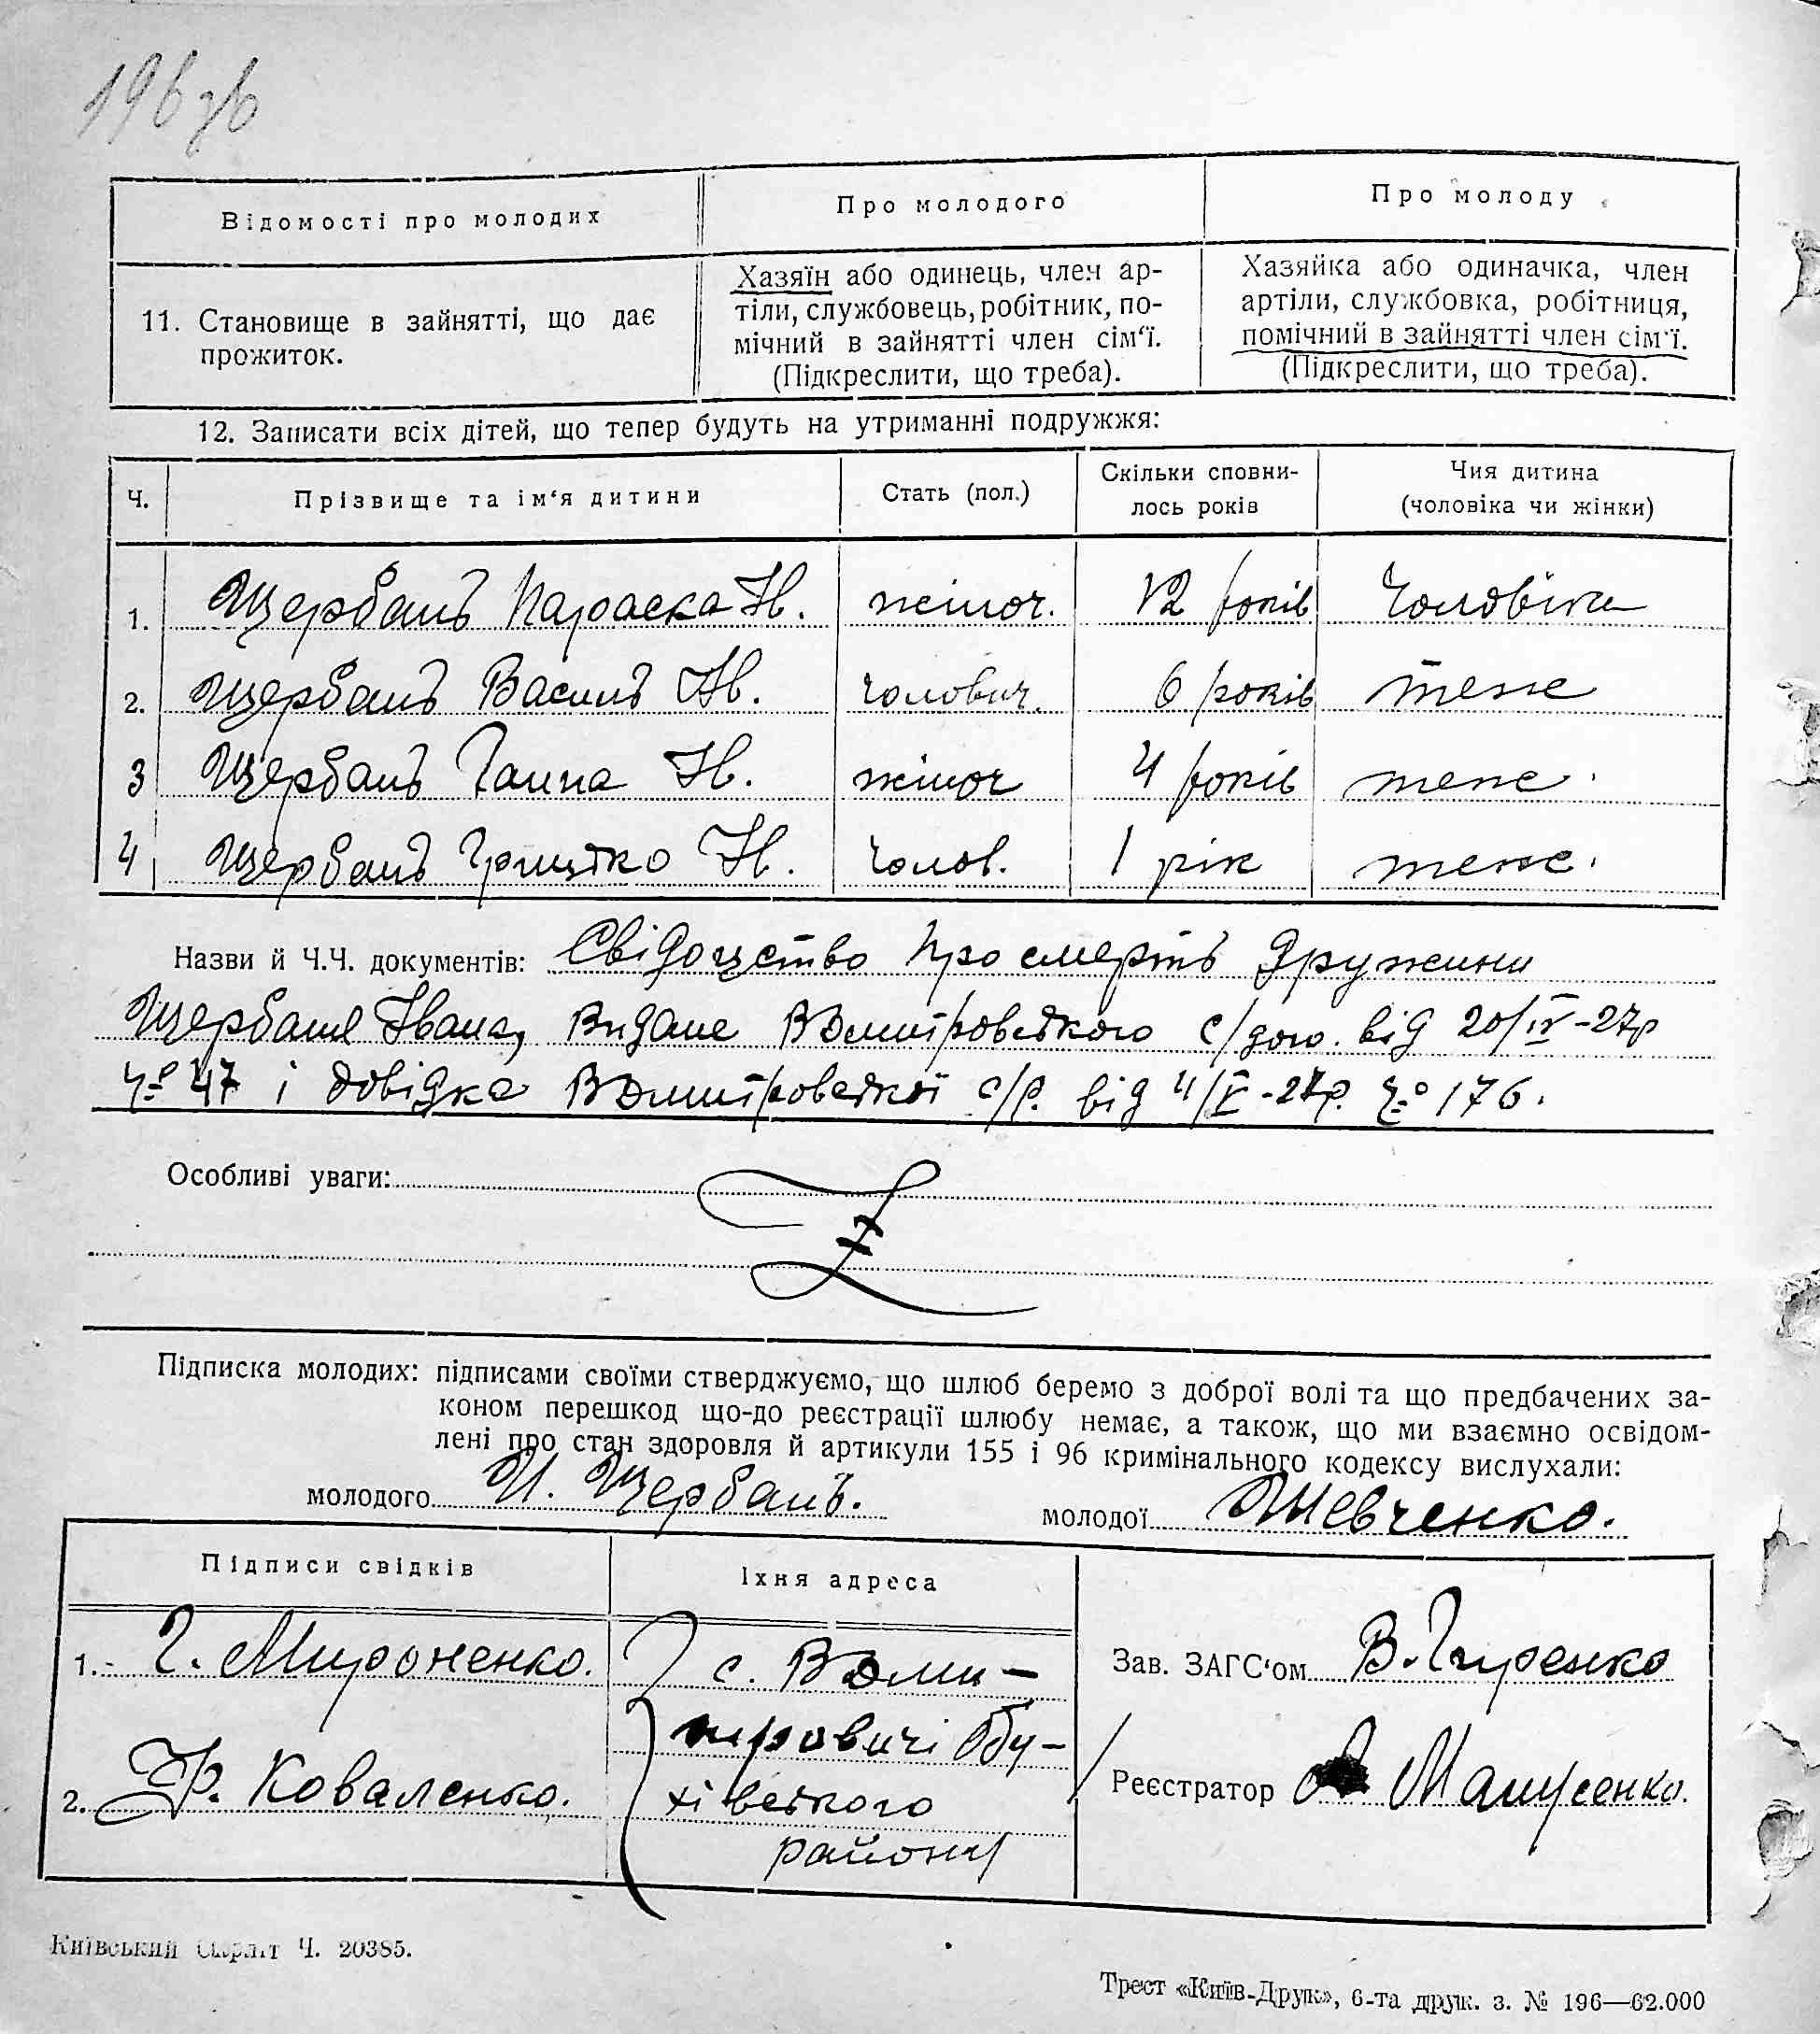 196 зв
Відомості про молодих
Про молодого
Про молоду
11. Становище в зайнятті, що дає
прожиток.
Хазяїн або одинець, член ар-
тіли, службовець, робітник, по-
мічний в зайнятті член сім‘ї.
(Підкреслити, що треба).
Хазяйка або одиначка, член
артіли, службовка, робітниця,
помічний в зайнятті член сім‘ї.
(Підкреслити, що треба).
12. Записати всіх дітей, що тепер будуть на утриманні подружжя:
Ч. Прізвище та ім‘я дитини Стать (пол.) Скільки сповни-
лось років Чия дитина
(чоловіка чи жінки)
1. Щербань Параска Ів. жіноч. 12 років Чоловіка
2. Щербань Василь Ів. чолович. 6 років теж
3 Щербань Ганна Ів. жіноч 4 років теж
4 Щербань Грицько Ів. Чолов. 1 рік теж.
Назви й Ч.Ч. документів: Свідоцтво про смерть дружини
Щербаня Івана, видане ВДмитровського с/ . від 20/IV-27р
Ч° 47 і довідка ВДмитровської с/р. від 4/V-27р. Ч° 176.
Особливі уваги:
Підписка молодих: підписами своїми стверджуємо, що шлюб беремо з доброї волі та що предбачених за-
коном перешкод що-до реєстрації шлюбу немає, а також, що ми взаємно освідом-
лені про стан здоровля й артикули 155 і 96 кримінального кодексу вислухали:
молодого И. Щербань.
молодої Шевченко.
Підписи свідків
Їхня адреса
1. Г. Мироненко.
2. Ф. Коваленко.
с. ВДми-
тровичі Обу-
хівського
району
Зав. ЗАГС‘ом В. Гиренко
Реєстратор
Київський Окрліт Ч. 20385.
Трест «Київ-Друк», 6-та друк. з. № 196—62.000